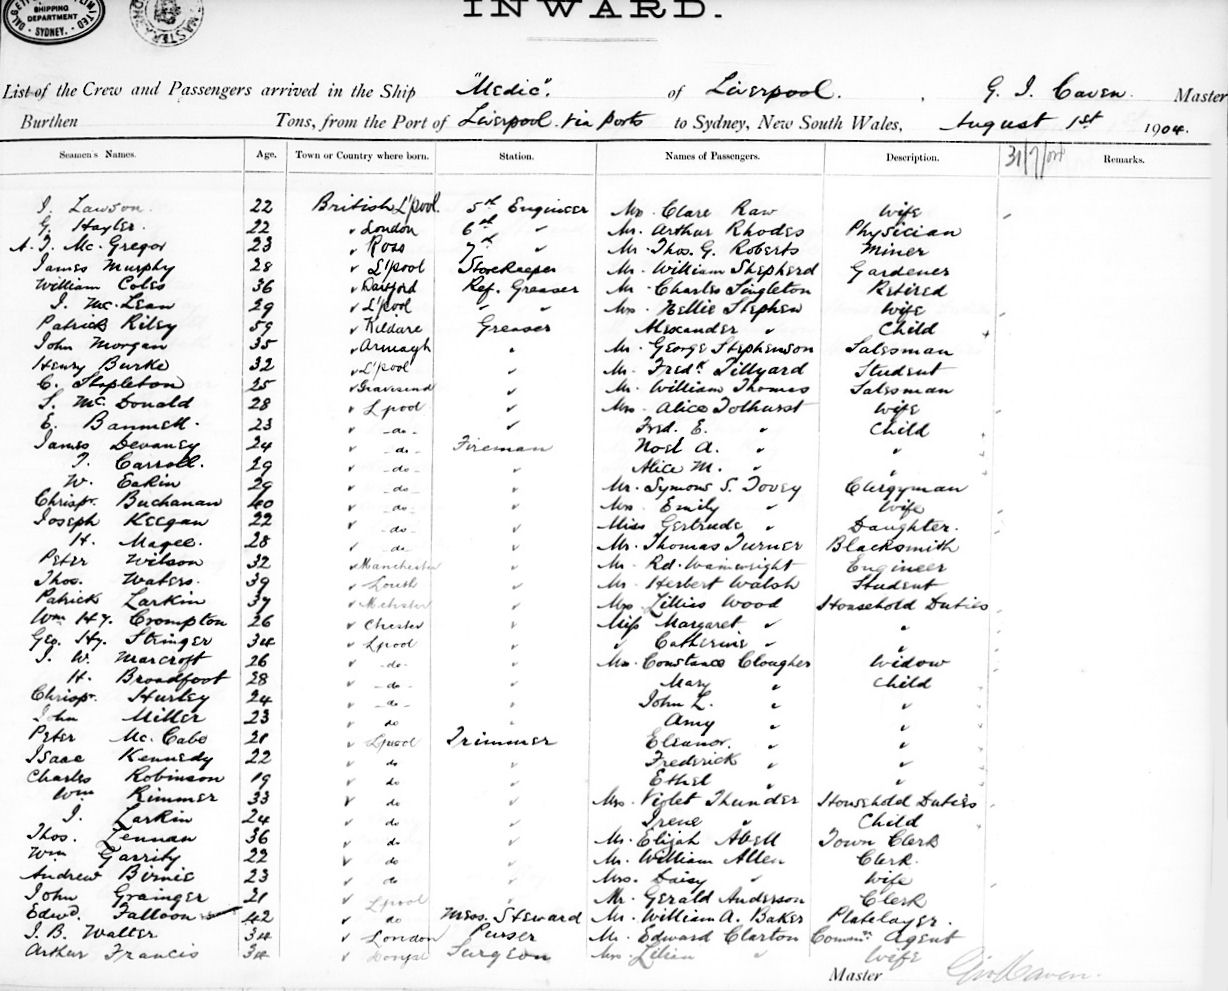 INWARD.
SHIPPING DEPARTMENT
SYDNEY.
List of the Crew and Passengers arrived in the Ship "Medic". of Liverpool. G. J. Caven. Master
Burthen Tons, from the Port of Liverpool via Ports to Sydney, New South Wales, August 1st 1904.
Seamen's Names. Age. Town or Country where born. Station. Names of Passengers. Description. 31/7/04 Remarks.
J. Lawson. 22 British L'pool. 5th Engineer Mrs. Clare Raw Wife
G. Hayler. 22 " London 6th " Mr. Arthur Rhodes Physician
A. J. McGregor 23 " Ross 7th " Mr. Thos. G. Roberts Miner
James Murphy 28 " L'pool Storekeeper Mr. William Shepherd Gardener
William Coles 36 " Dartford Ref. Greaser Mr. Charles Singleton Retired
J. McLean 29 " L'pool " " Mrs. Nellie Stephen Wife
Patrick Riley 59 " Kildare Greaser Alexander " Child
John Morgan 35 " Armagh " Mr. George Stephenson Salesman
Henry Burke 32 " L'pool " Mr. Fredk Tillyard Student
C. Stapleton 25 " Gravesend " Mr. William Thomas Salesman
S. McDonald 28 " L'pool " Mrs. Alice Tolhurst Wife
E. Bannell. 23 " -do- " Fred. E. " Child
James Devaney 24 " -do- Fireman Noel A. " "
T. Carroll. 29 " -do- " Alice M. " "
W. Eakin 29 " -do- " Mr. Symons S. Tovey Clergyman
Chrisp. Buchanan 40 " -do- " Mrs. Emily " Wife
Joseph Keegan 22 " -do- " Miss Gertrude " Daughter.
H. Magee. 28 " -do- " Mr. Thomas Turner Blacksmith
Peter Wilson 32 " Manchester " Mr. Rd. Wainwright Engineer
Thos. Waters. 39 " Louth " Mr. Herbert Walsh Student
Patrick Larkin 37 " M'chester " Mrs. Lillies Wood Household Duties
Wm Hy. Crompton 26 " Chester " Miss Margaret " "
Geo. Hy. Stringer 34 " Lpool " " Catherine " "
J. W. Marcroft 26 " -do- " Mrs. Constance Clougher Widow
H. Broadfoot 28 " -do- " Mary " Child
Chrisp. Hurley 24 " -do- " John L. " "
John Miller 23 " do " Amy " "
Peter McCabe 21 " Lpool Trimmer Eleanor. " "
Isaac Kennedy 22 " do " Frederick " "
Charles Robinson 19 " do " Ethel " "
Wm Rimmer 33 " do " Mrs. Violet Thunder Household Duties
J. Larkin 24 " do " Irene " Child
Thos. Lennan 36 " do " Mr. Elijah Abell Town Clerk
Wm Garrity 22 " do " Mr. William Allen Clerk.
Andrew Birnie 23 " do " Mrs. Daisy " Wife
John Grainger 21 " Lpool " Mr. Gerald Anderson Clerk
Edwd. Falloon 42 " do Mess. Steward Mr. William A. Baker Platelayer.
J. B. Walter 34 " London Purser Mr. Edward Clarton Commn. Agent
Arthur Francis 34 " Surgeon Mrs. Lilian " Wife
Master Geo J Caven.